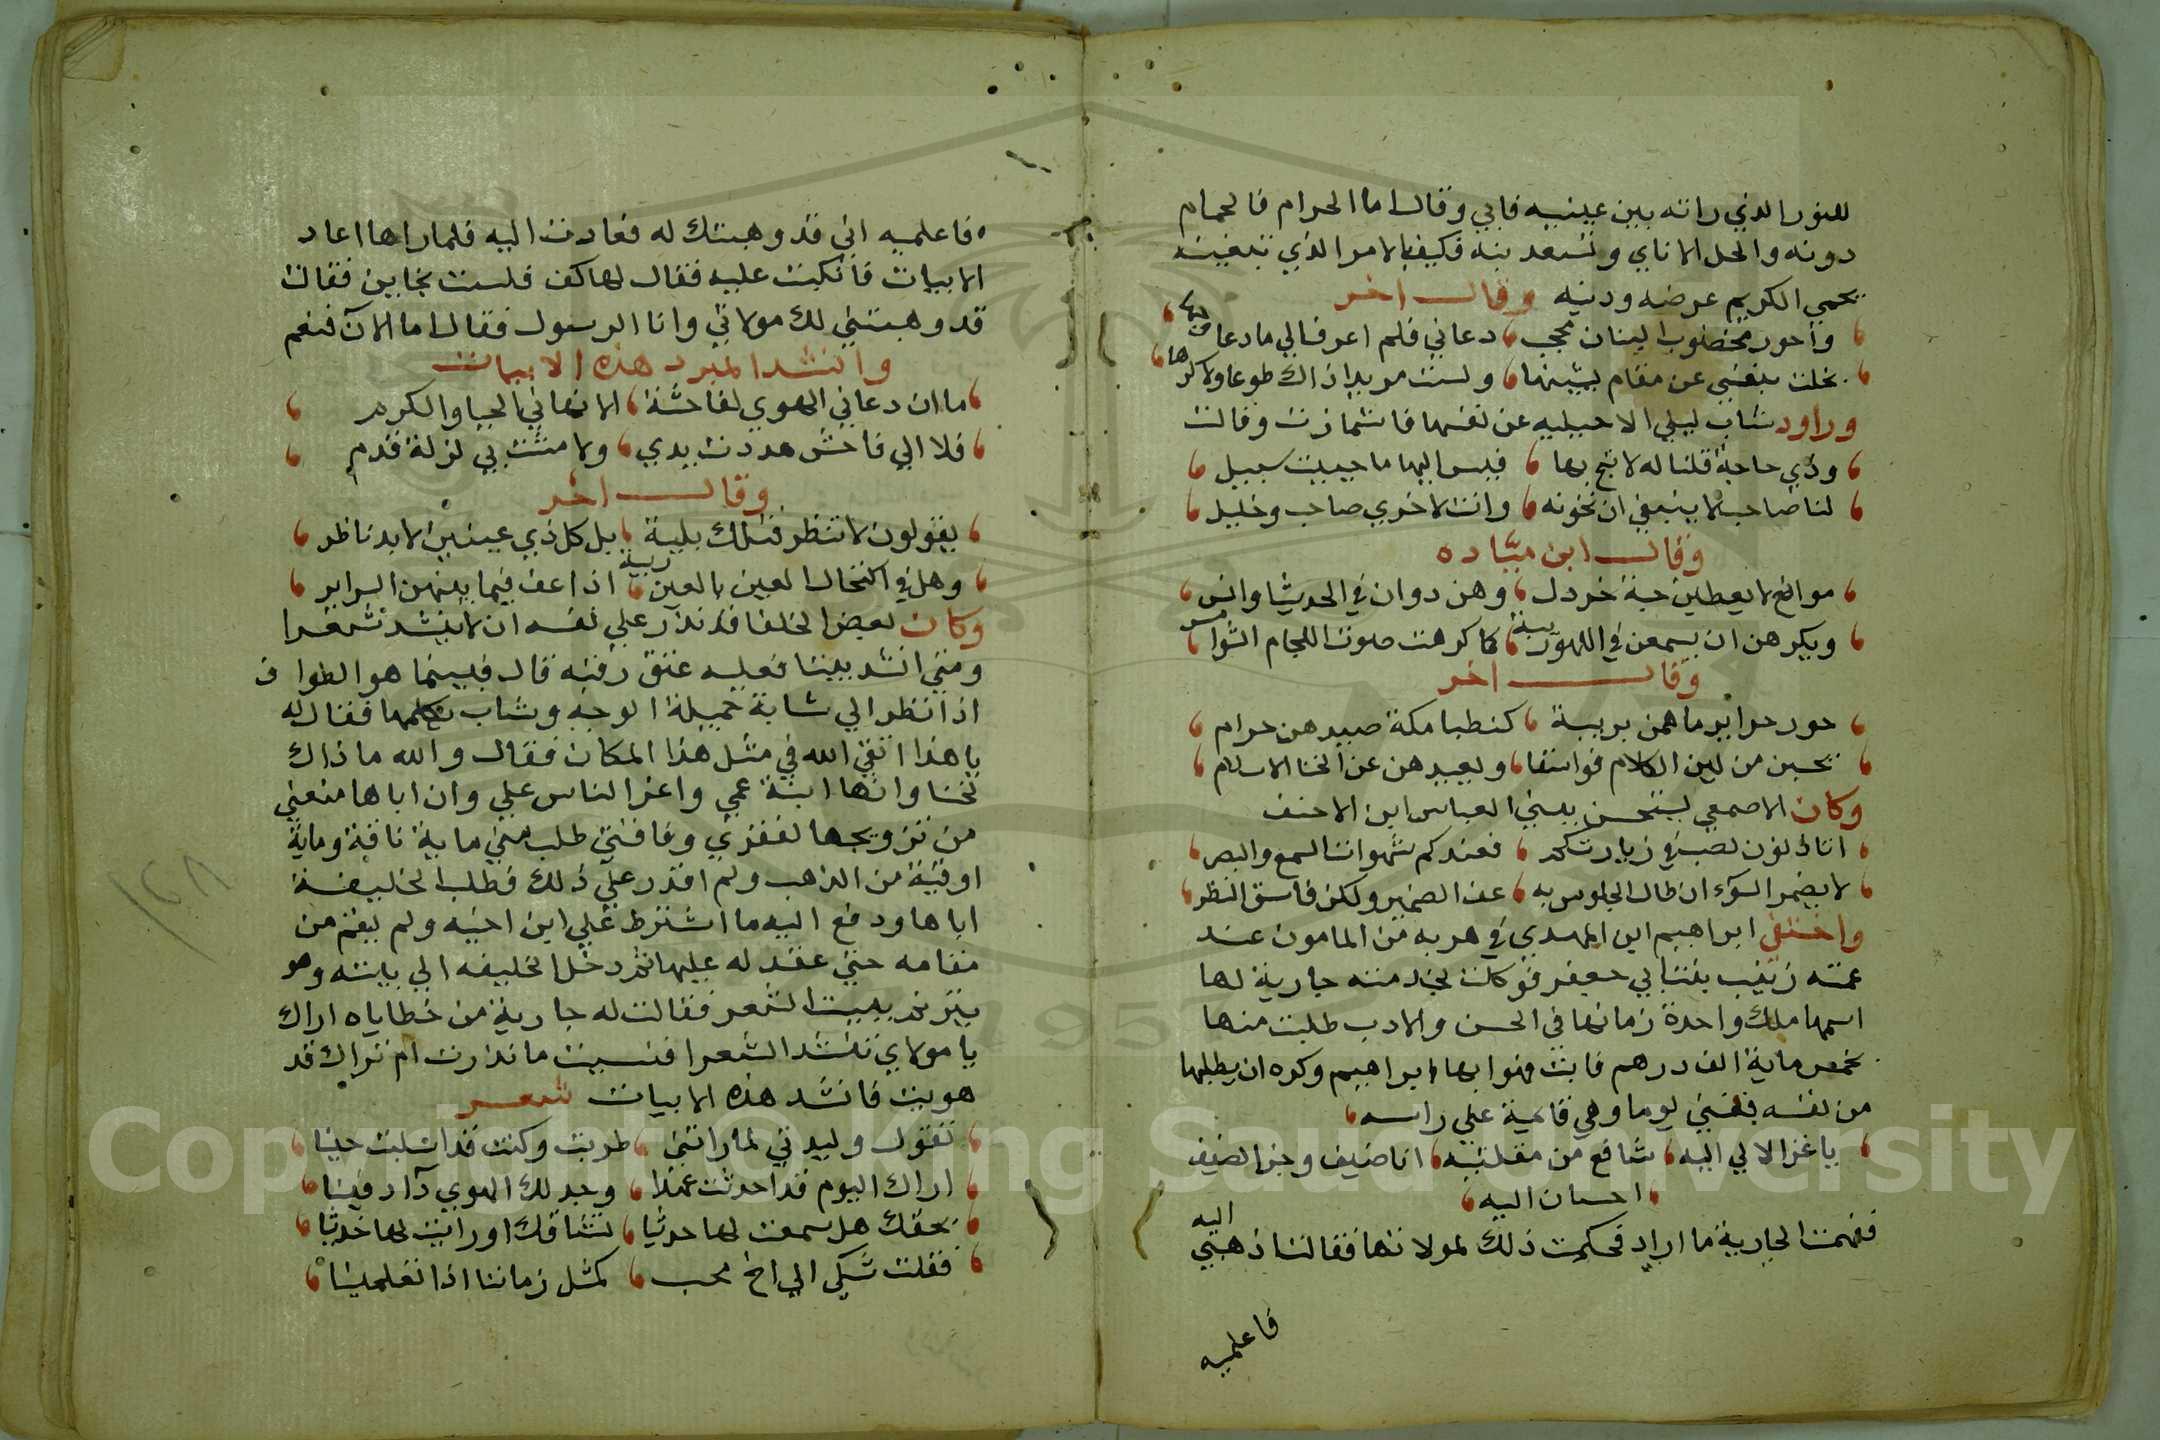 للنور الذي راته بين عينيه فابي وقال اما الحرام فالحمام
دونه والحل لاناي ونسعد بنه فكيف بالامر الذي تبغينه
يحمي الكريم عرضه ودينه وقال اخر
واحور مخضوب البنان محجب دعاني فلم اعرف الي ما دعا
بخلت بنفسي عن مقام يشينها ولست مريدا ذاك طوعا ولا كرها
وراود شاب ليلي الاخيليه عن نفسها فاشمازت وقالت
وذي حاجة قلنا له لا تبح بها فليس اليها ما حييت سبيل
لنا صاحب لا ينبغي ان نخونه وانت لاخري صاحب وخليل
وقال ابن مياده
موانع لا يعطين حبة خردل وهن دوان في الحديث اوانس
ويكرهن ان يسمعن في اللهو ريبة كما كرهت صوت اللجام الشوامس
وقال اخر
حور حراير ما هممن بريبة كظبا مكة صيدهن حرام
يحسبن من لين الكلام فواسقا ويصدهن عن الخنا الاسلام
وكان الاصمعي يستحسن بيتي العباس ابن الاحنف
اتاذنون لصب في زيارتكم فعندكم شهوات السمع والبصر
لا يضمر السوء ان طال الجلوس به عف الضمير ولكن فاسق النظر
واختفي ابراهيم ابن المهدي في هربه من المامون عند
عمته زينب بنت ابي جعفر فوكلت بخدمته جارية لها
اسمها ملك واحدة زمانها في الحسن والادب طلبت منها
بخمس ماية الف درهم فابت فهوا بها ابراهيم وكره ان يطلبها
من نفسه فغني يوما وهي قايمة علي راسه
يا غزالا لي اليه شافع من مقلتيه انا ضيف وجزا الضيف
احسان اليه
ففهمت الجارية ما اراد فحكمت ذلك لمولاتها فقالت اذهبي اليه
فاعلميه
فاعلميه اني قد وهبتك له فعادت اليه فلما راها اعاد
الابيات فانكبت عليه فقال لها كف فلست بخاين فقالت
قد وهبتني لك مولاتي وانا الرسول فقال اما الآن فنعم
وانشد المبرد هذه الابيات
ما ان دعاني الهوي لفاحشة الا نهاني الحيا والكرم
فلا الي فاحش مددت يدي ولا مشت بي لزلة قدم
وقال اخر
يقولون لا تنظر فتلك بلية بل كل ذي عينين لابد ناظر
وهل في اكتحال العين بالعين ريبة اذا عف فيما بينهن السراير
وكان بعض الخلفا قد نذر علي نفسه ان لا ينشد شعرا
ومتي انشد بيتا فعليه عتق رقبه قال فبينما هو الطواف
اذا نظر الي شابة جميلة الوجه وشاب يكلمها فقال له
يا هذا اتقي الله في مثل هذا المكان فقال والله ما ذاك
لخنا وانها ابنة عمي واعز الناس علي وان اباها منعني
من تزويجها لفقري وفاقتي طلب مني ماية ناقة وماية
اوقية من الذهب ولم اقدر علي ذلك فطلب الخليفة
اباها ودفع اليه ما اشترط علي ابن اخيه ولم يقم من
مقامه حتي عقد له عليها ثم دخل الخليفه الي بيته وهو
يترنم ببيت الشعر فقالت له جارية من خطاياه اراك
يا مولاي تنشد الشعرا فنسيت ما نذرت ام نراك قد
هويت فانشد هذه الابيات شعر
تقول وليدتي لما راتني طربت وكنت قد اسليت حينا
اراك اليوم قد احدثت عهدا وجدلك الهوي دآ دفينا
بحقك هل سمعت لها حديثا تشاقك او رايت لها خدينا
فقلت شكي الي اخ محب كمثل زماننا اذا تعلمينا